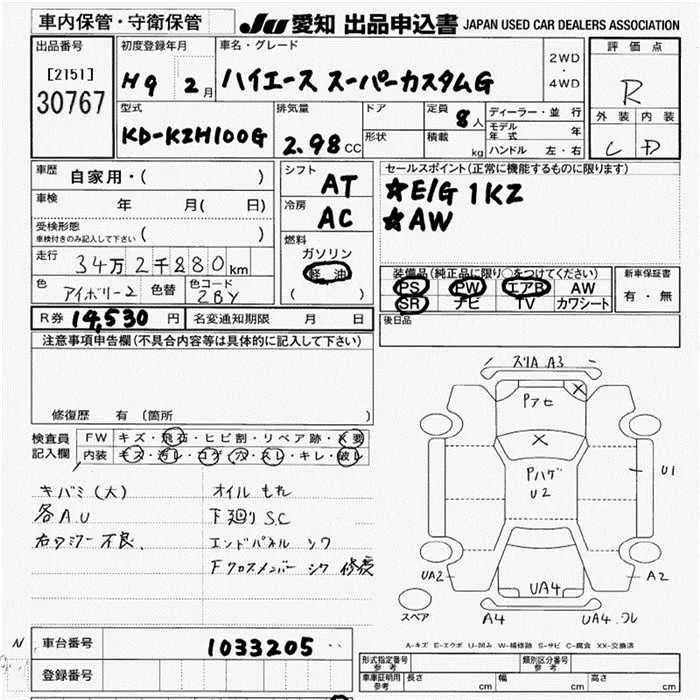 車内保管・守衛保管
JU 愛知 出品申込書 JAPAN USED CAR DEALERS ASSOCIATION
出品番号
[2151]
30767
初度登録年月
H9 2月
車名・グレード
ハイエース スーパーカスタムG
2WD
・
4WD
評価点
R
外装 内装
C D
型式
KD-KZH100G
排気量
2.98 CC
ドア
形状
定員 8人
積載 kg
ディーラー・並行
モデル年式 年
ハンドル 左・右
車歴 自家用・( )
車検 年 月( 日)
受検形態
車検付きのみ記入して下さい ( )
走行 34万2千280km
色 アイボリー2 色替 色コード 2BY
シフト
AT
冷房
AC
燃料
ガソリン
軽油
( )
セールスポイント(正常に機能するものに限ります)
☆E/G 1KZ
☆AW
装備品(純正品に限り○をつけてください)
PS PW エアB AW
SR ナビ TV カワシート
新車保証書
有・無
R券 14,530 円 名変通知期限 月 日
後日品
注意事項申告欄(不具合内容等は具体的に記入して下さい)
修復歴 有 (箇所 )
検査員記入欄
FW キズ・飛石・ヒビ割・リペア跡・X要
内装 キズ・汚レ・コゲ・穴・スレ・キレ・破レ
キバミ(大) オイルもれ
各A.U 下廻りS.C
右ミラー不良、 エンドパネル シワ
Fクロスメンバー シワ 修復
スリA A3
Pアセ
X
X
Pハゲ
U2
U1
UA2
UA4
A2
スペア
A4
UA4.ワレ
A-キズ E-エクボ U-凹み W-補修跡 S-サビ C-腐食 XX-交換済
N
車台番号 1033205
登録番号
形式指定番号 参考
類別区分番号 参考
車庫証明用 参考 長さ cm 幅 cm 高さ cm